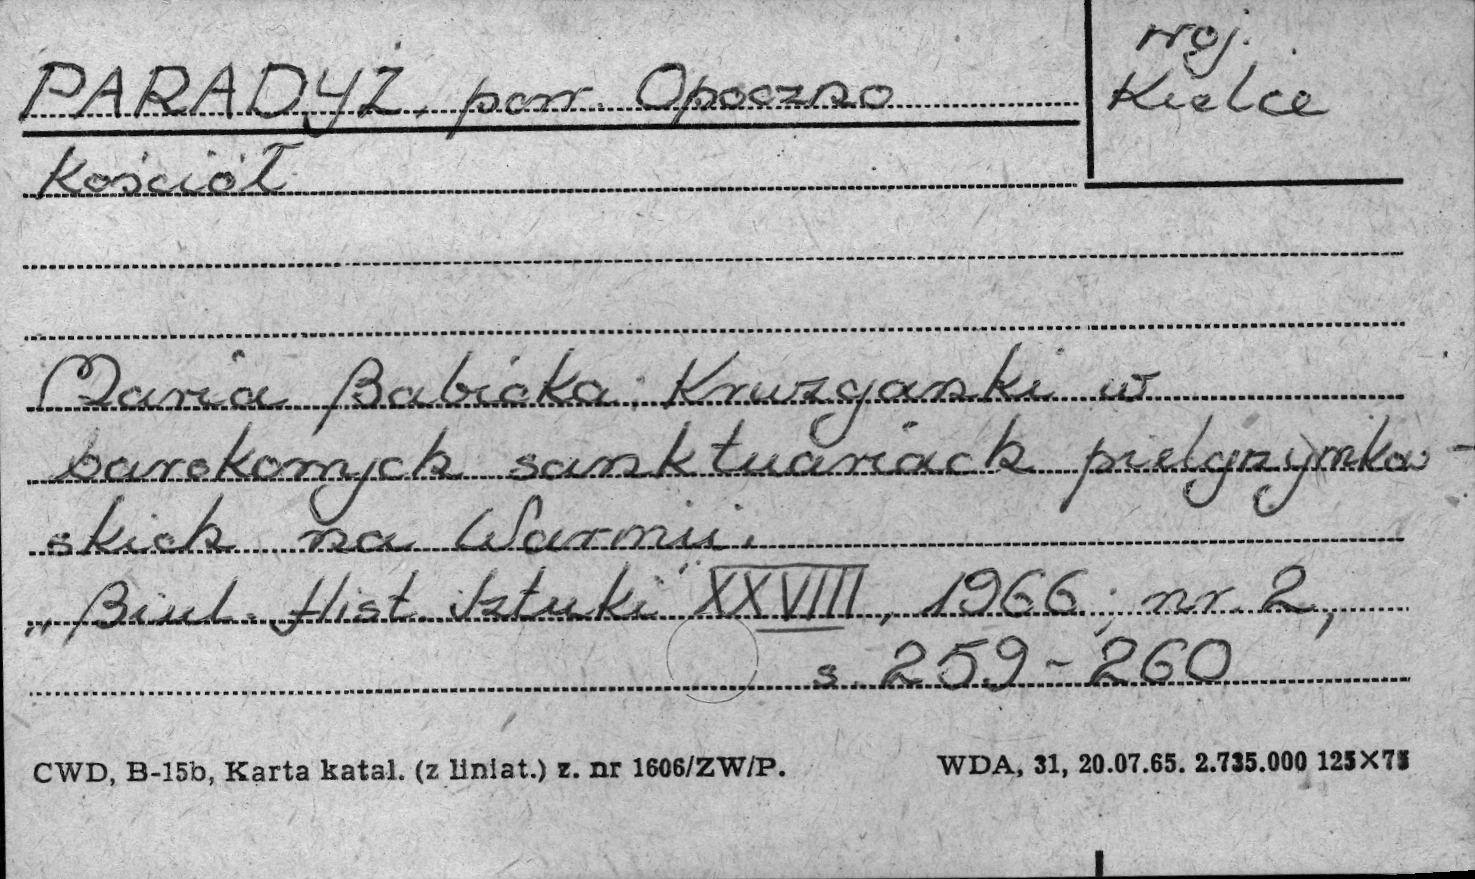 woj.
PARADYŻ, pow. Opoczno
Kielce
Kościół
Maria Babicka: Krużganki w
barokowych sanktuariach pielgrzymkow-
skich na Warmii.
„Biul. Hist. Sztuki" XXVIII, 1966, nr. 2,
s. 259-260
CWD, B-15b, Karta katal. (z liniat.) z. nr 1606/ZW/P. WDA, 31, 20.07.65. 2.735.000 125×75